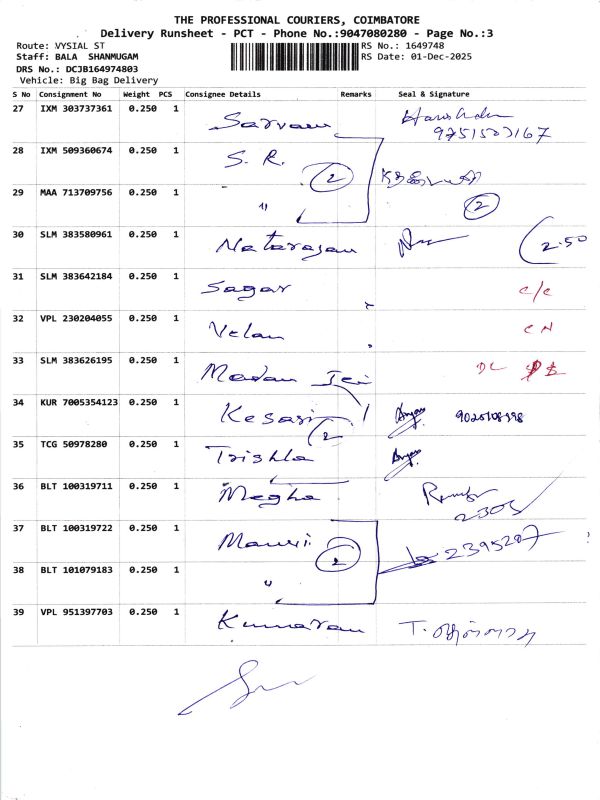 THE PROFESSIONAL COURIERS, COIMBATORE
Delivery Runsheet - PCT - Phone No.:9047080280 - Page No.:3
Route: VYSIAL ST RS No.: 1649748
Staff: BALA SHANMUGAM RS Date: 01-Dec-2025
DRS No.: DCJB164974803
Vehicle: Big Bag Delivery
S No Consignment No Weight PCS Consignee Details Remarks Seal & Signature
27 IXM 303737361 0.250 1 Sarvam
9751503167
28 IXM 509360674 0.250 1 S. R. 2
29 MAA 713709756 0.250 1 " 2
30 SLM 383580961 0.250 1 Natarasan 2.50
31 SLM 383642184 0.250 1 Sagar C/C
32 VPL 230204055 0.250 1 Velan CN
33 SLM 383626195 0.250 1 Madan Jei DL
34 KUR 7005354123 0.250 1 Kesari 2
35 TCG 50978280 0.250 1 Trishla
36 BLT 100319711 0.250 1 Megha
2305
37 BLT 100319722 0.250 1 2 2395207
38 BLT 101079183 0.250 1 "
39 VPL 951397703 0.250 1 Kumaran